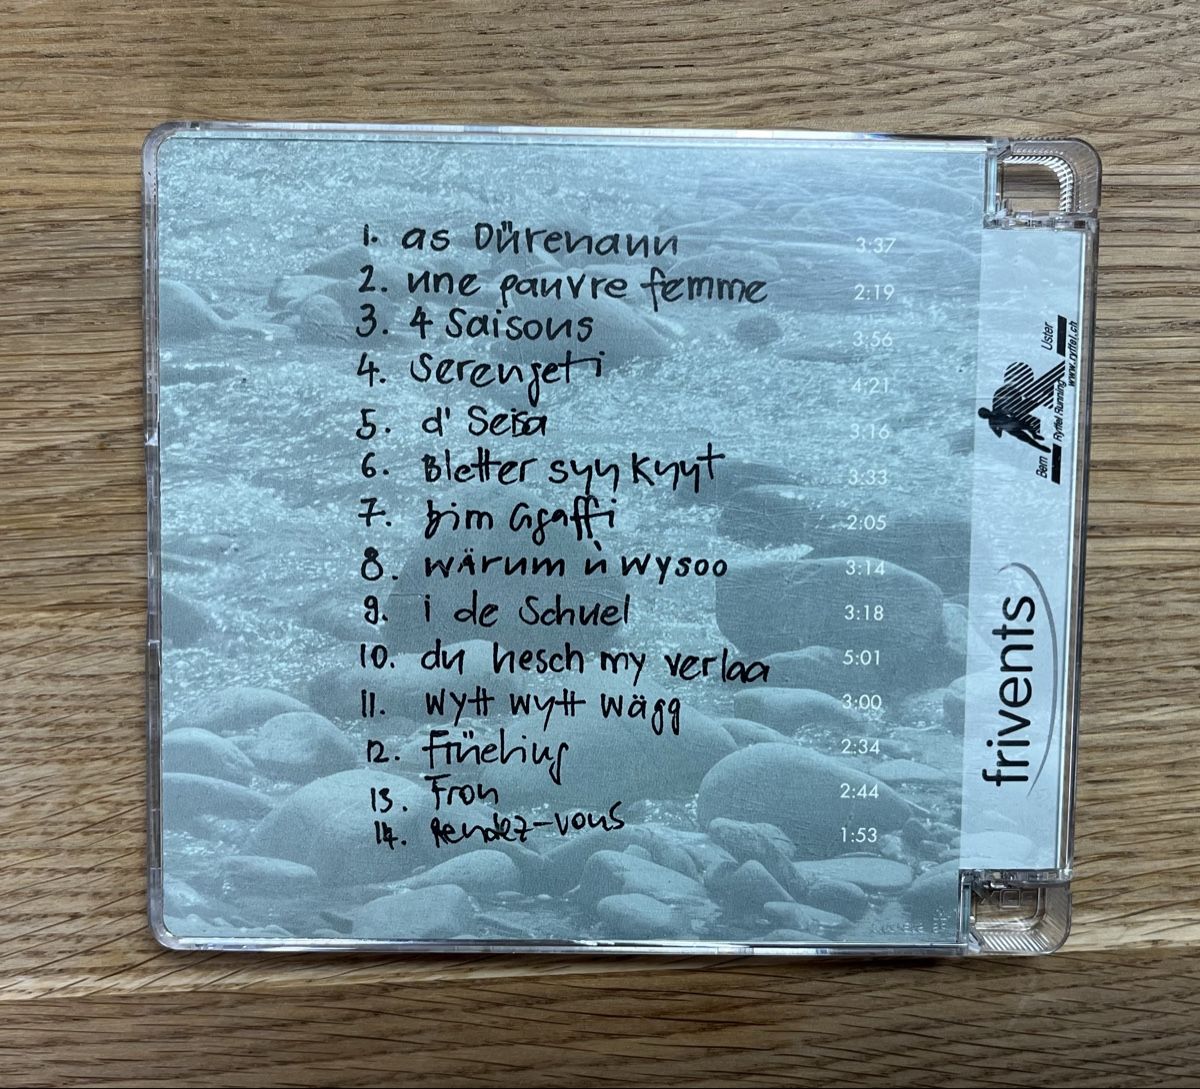 1. as Dürenann 3:37
2. une pauvre femme 2:19
3. 4 Saisons 3:56
4. Serengeti 4:21
5. d' Seisa 3:16
6. Bletter syy kyyt 3:33
7. bim Ggaffi 2:05
8. wärum ù wysoo 3:14
9. i de Schuel 3:18
10. du hesch my verlaa 5:01
11. wytt wytt wägg 3:00
12. Früeling 2:34
13. Fron 2:44
14. Rendez-vous 1:53
Bern Ryffel Running Uster
www.ryffel.ch
frivents